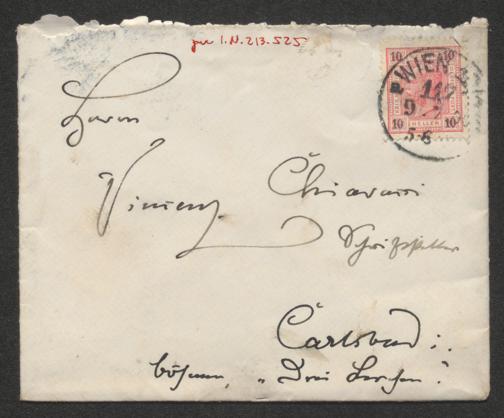 zu I.N. 213.525
10 10
WIEN
9
5-6
10 HELLER 10
Herrn
Vincenz Chiavacci
Schriftsteller
Carlsbad
böhmen, „Drei Lerchen"